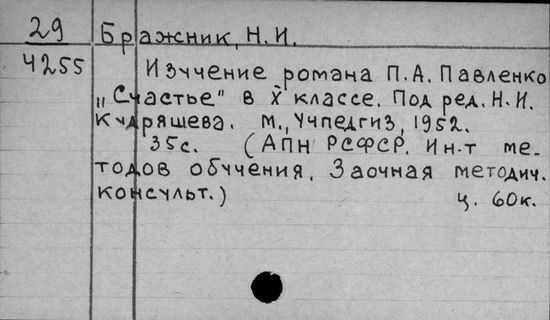 29 Бражник, Н.И.
4255 Изучение романа П.А. Павленко
„Счастье" в X классе. Под ред. Н.И.
Кудряшева. М., Учпедгиз, 1952.
35с. (АПН РСФСР. Ин-т ме-
тодов обучения. Заочная методич.
консульт.) ц. 60к.